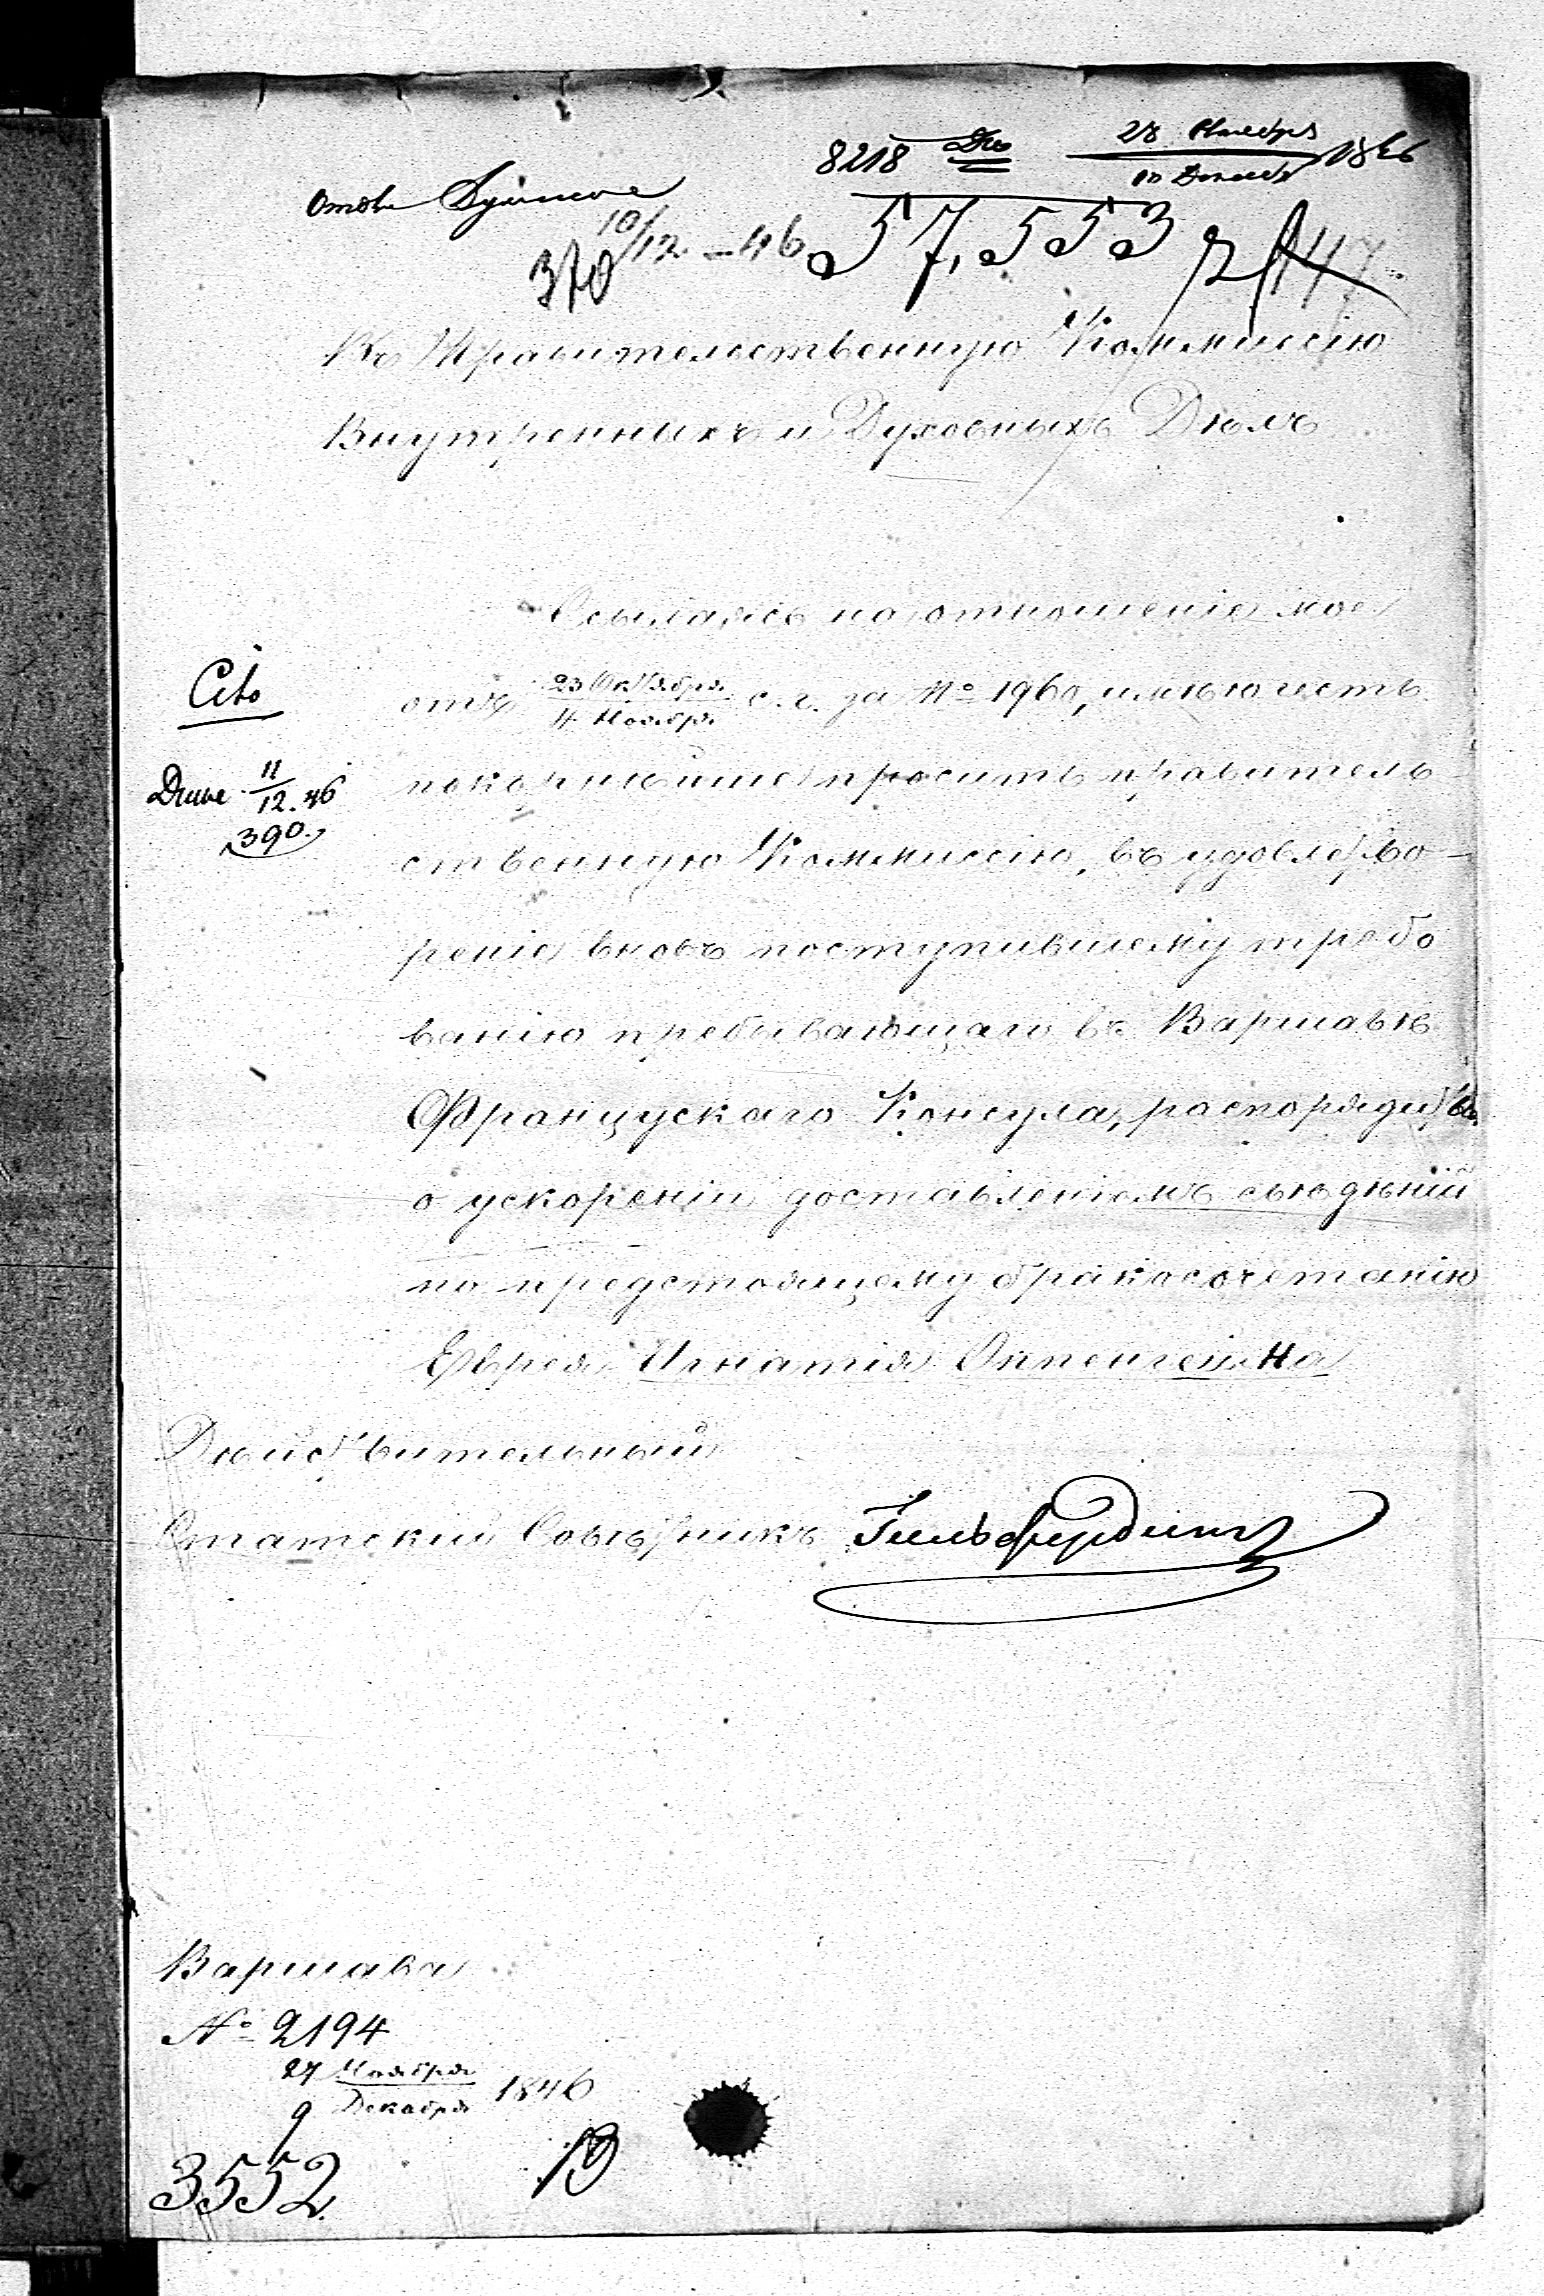 8218 28 Ноября 1846
10 Декабр
10/12 - 46 57,553
370
147
Въ Правительственную Коммиссію
Внутренныхъ и Духовныхъ Дѣлъ
Ссылаясь на отношеніе мое
Cito
отъ 23 Октября / 4 Ноября с. г. за № 1960, имѣю честь
11/12. 46
390.
покорнѣйше просить правитель
ственную Коммиссію, въ удовлетво-
реніе вновь поступившему требо
ванію пребывающаго въ Варшавѣ
Французскаго Консула, распорядиться
о ускореніи доставленіемъ свѣдѣній
по предстоящему бракосочетанію
Еврея Игнатія Оппенгейма
Дѣйствительный
Статскій Совѣтникъ Гильфердинг
Варшава
№ 2194
27 Ноября / 9 Декабря 1846
3552